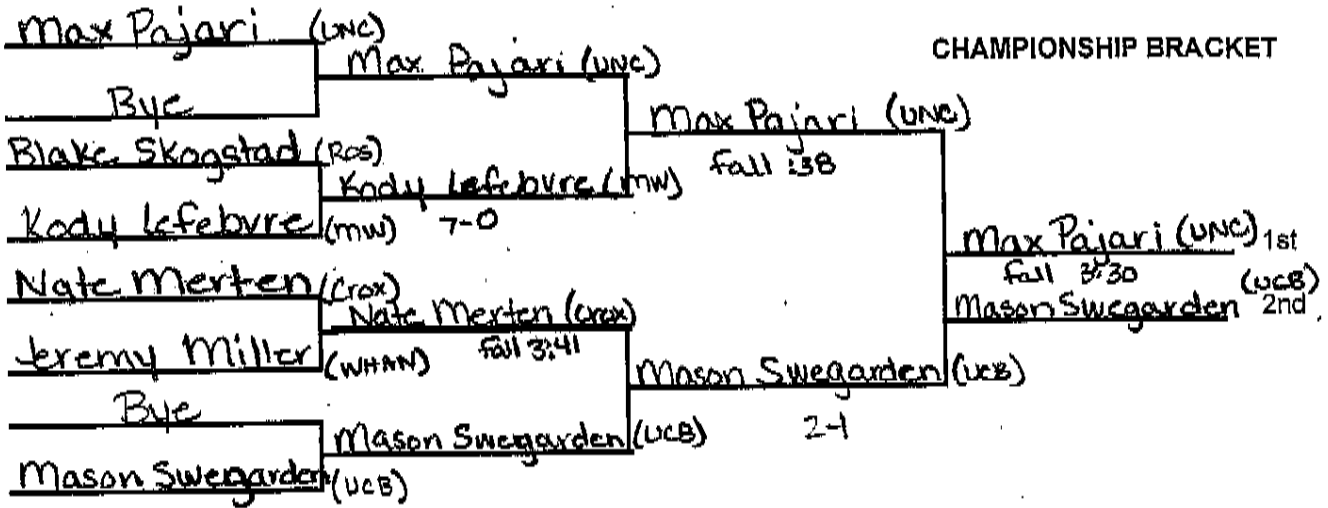 CHAMPIONSHIP BRACKET
Max Pajari (UNC)
Bye
Blake Skogstad (ROS)
Kody Lefebvre (MW)
Nate Merten (Crox)
Jeremy Miller (WHAN)
Bye
Mason Swegarden (UCB)
Max Pajari (UNC)
Kody Lefebvre (MW)
7-0
Nate Merten (Crox)
fall 3:41
Mason Swegarden (UCB)
Max Pajari (UNC)
fall :38
Mason Swegarden (UCB)
2-1
Max Pajari (UNC) 1st
fall 3:30
Mason Swegarden (UCB) 2nd